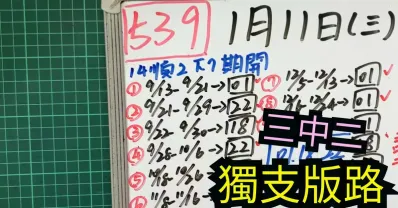 539 1月11日(三)
14順2下7期開
① 9/13-9/21→01
② 9/21-9/29→22
③ 9/22-9/30→18
④ 9/28-10/6→22
⑤ 10/18-10/26
⑥ 11/8-11/16
⑦ 12/5-12/13→01
三中二
獨支版路